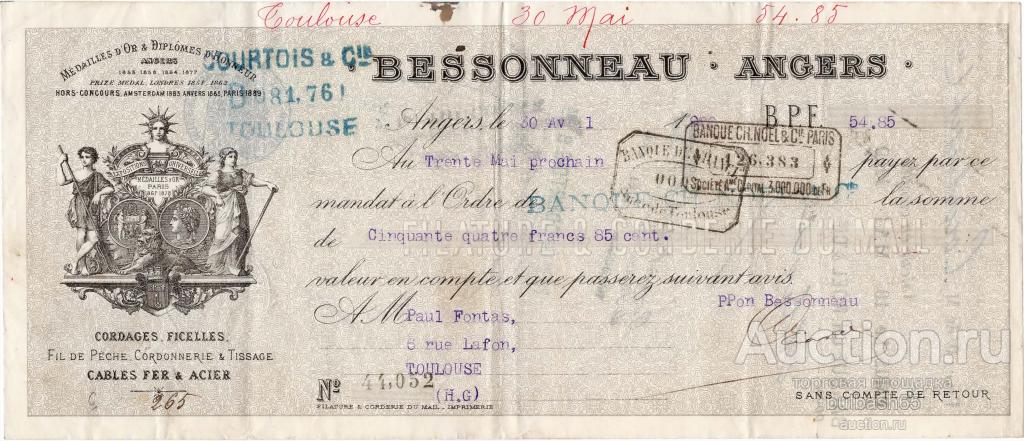 Toulouse 30 Mai 54.85
MÉDAILLES D'OR & DIPLÔMES D'HONNEUR
ANGERS
PRIZE MEDAL, LONDRES
HORS-CONCOURS, AMSTERDAM 1883, ANVERS 1885, PARIS 1889
COURTOIS & Cie
TOULOUSE
BESSONNEAU · ANGERS
Angers, le 30 Av 1 B.P.F. 54.85
BANQUE CH. NOEL & Cie PARIS
126.383
Au Trente Mai prochain payez par ce
mandat à l'Ordre de BANQUE la somme
de Cinquante quatre francs 85 cent.
FILATURE & CORDERIE DU MAIL
valeur en compte, et que passerez suivant avis.
PPon Bessonneau
EXPOSITIONS UNIVERSELLES
MÉDAILLES D'OR
PARIS
1867 1878
A M Paul Fontas,
6 rue Lafon,
TOULOUSE
(H.G)
CORDAGES, FICELLES,
FIL DE PÊCHE, CORDONNERIE & TISSAGE
CABLES FER & ACIER
265
No 44,052
FILATURE & CORDERIE DU MAIL - IMPRIMERIE
SANS COMPTE DE RETOUR
Auction.ru
торговая площадка
auction.ru